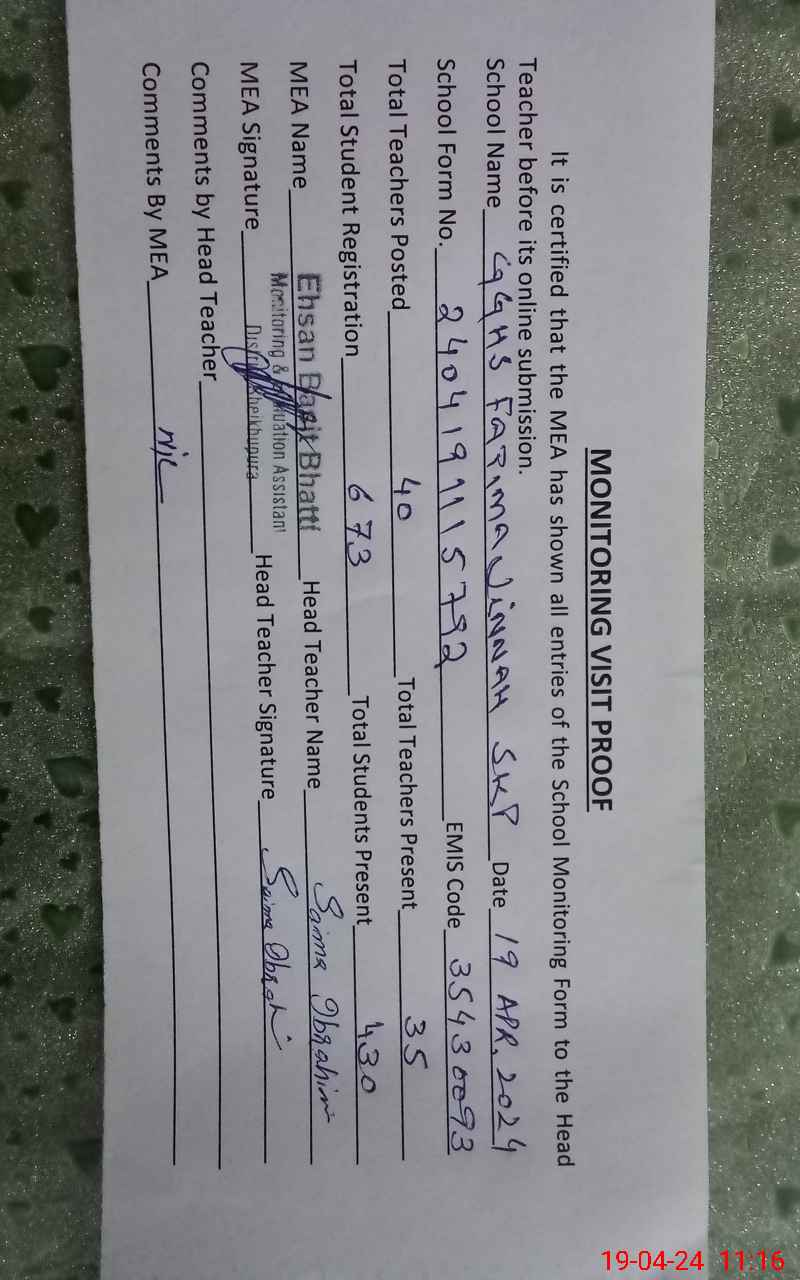 MONITORING VISIT PROOF
It is certified that the MEA has shown all entries of the School Monitoring Form to the Head
Teacher before its online submission.
School Name GGHS FATIMA JINNAH SKP Date 19 APR. 2024
School Form No. 2404191115792 EMIS Code 35430093
Total Teachers Posted 40 Total Teachers Present 35
Total Student Registration 673 Total Students Present 430
MEA Name Ehsan Basit Bhatti Head Teacher Name Saima Ibrahim
Monitoring & Evaluation Assistant
MEA Signature District Sheikhupura Head Teacher Signature Saima Ibrahi
Comments by Head Teacher
Comments By MEA Nil
19-04-24 11:16